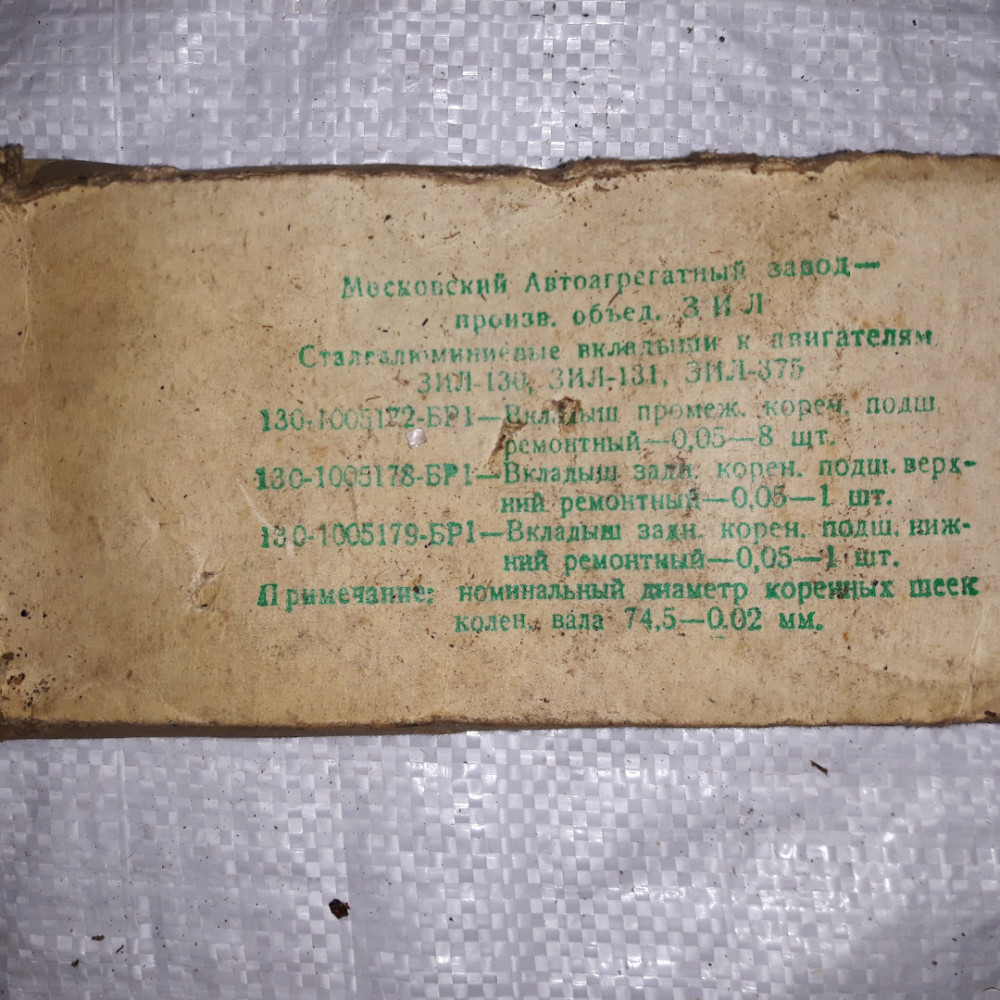 Московский Автоагрегатный завод—
произв. объед. З И Л
Сталеалюминиевые вкладыши к двигателям
ЗИЛ-130, ЗИЛ-131, ЗИЛ-375
130-1005172-БР1—Вкладыш промеж. корен. подш.
ремонтный—0,05—8 шт.
130-1005178-БР1—Вкладыш задн. корен. подш. верх-
ний ремонтный—0,05—1 шт.
130-1005179-БР1—Вкладыш задн. корен. подш. ниж-
ний ремонтный—0,05—1 шт.
Примечание: номинальный диаметр коренных шеек
колен. вала 74,5—0.02 мм.